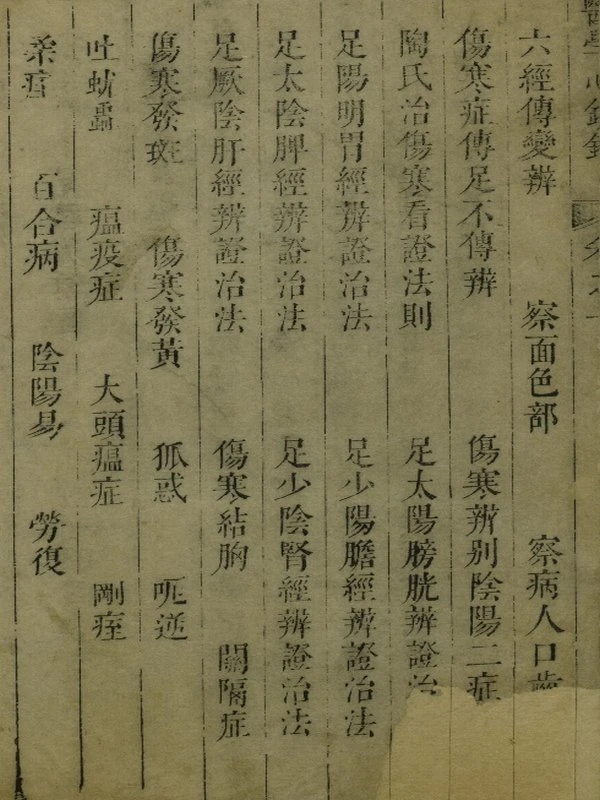 六經傳變辨 察面色部 察病人口齒
傷寒症傳足不傳辨 傷寒辨别陰陽二症
陶氏治傷寒看證法則 足太陽膀胱辨證治
足陽明胃經辨證治法 足少陽膽經辨證治法
足太陰脾經辨證治法 足少陰腎經辨證治法
足厥陰肝經辨證治法 傷寒結胸 關隔症
傷寒發斑 傷寒發黃 狐惑 呃逆
吐蚘蟲 瘟疫症 大頭瘟症 剛痓
柔痓 百合病 陰陽易 勞復